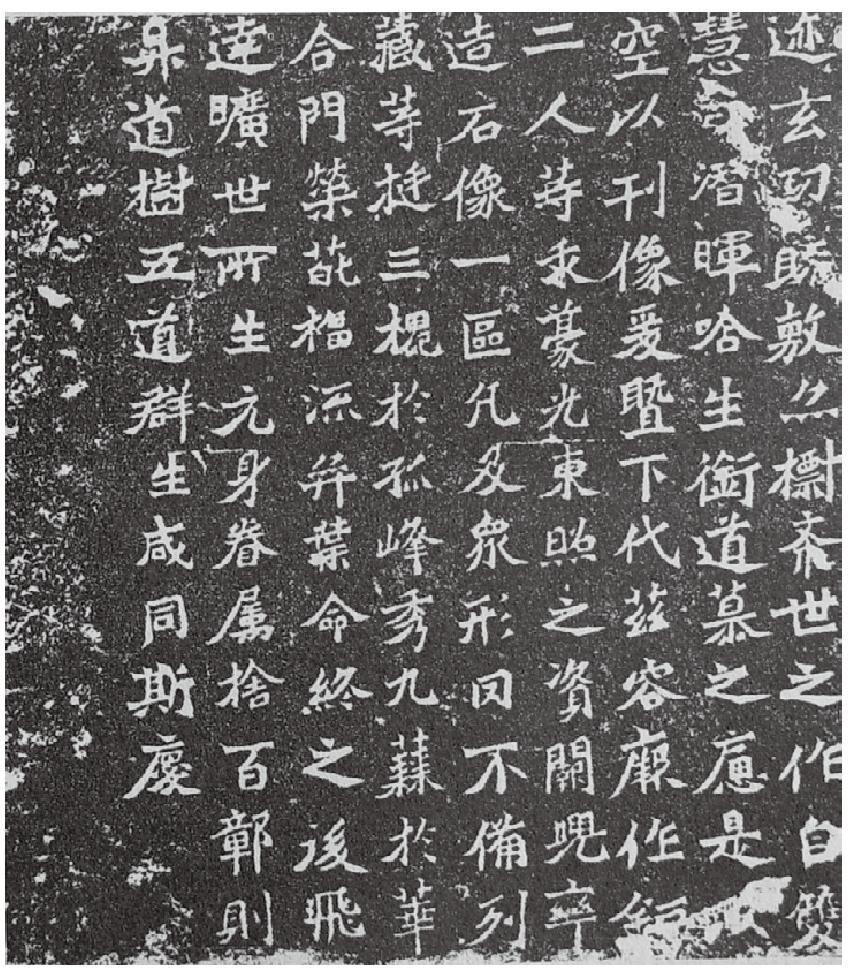 迹玄功既敷亦標希世之作自雙
慧日潛暉唅生銜道慕之痛是以
空以刊像爰暨下代茲容厥作鉅
二人等求豪光東照之資闕兜率
造石像一區凡及衆形罔不備列
藏等挺三槐於孤峰秀九蕀於華
合門榮葩福流弈葉命終之後飛
達曠世所生元身眷属捨百鄣則
昇道樹五道群生咸同斯慶